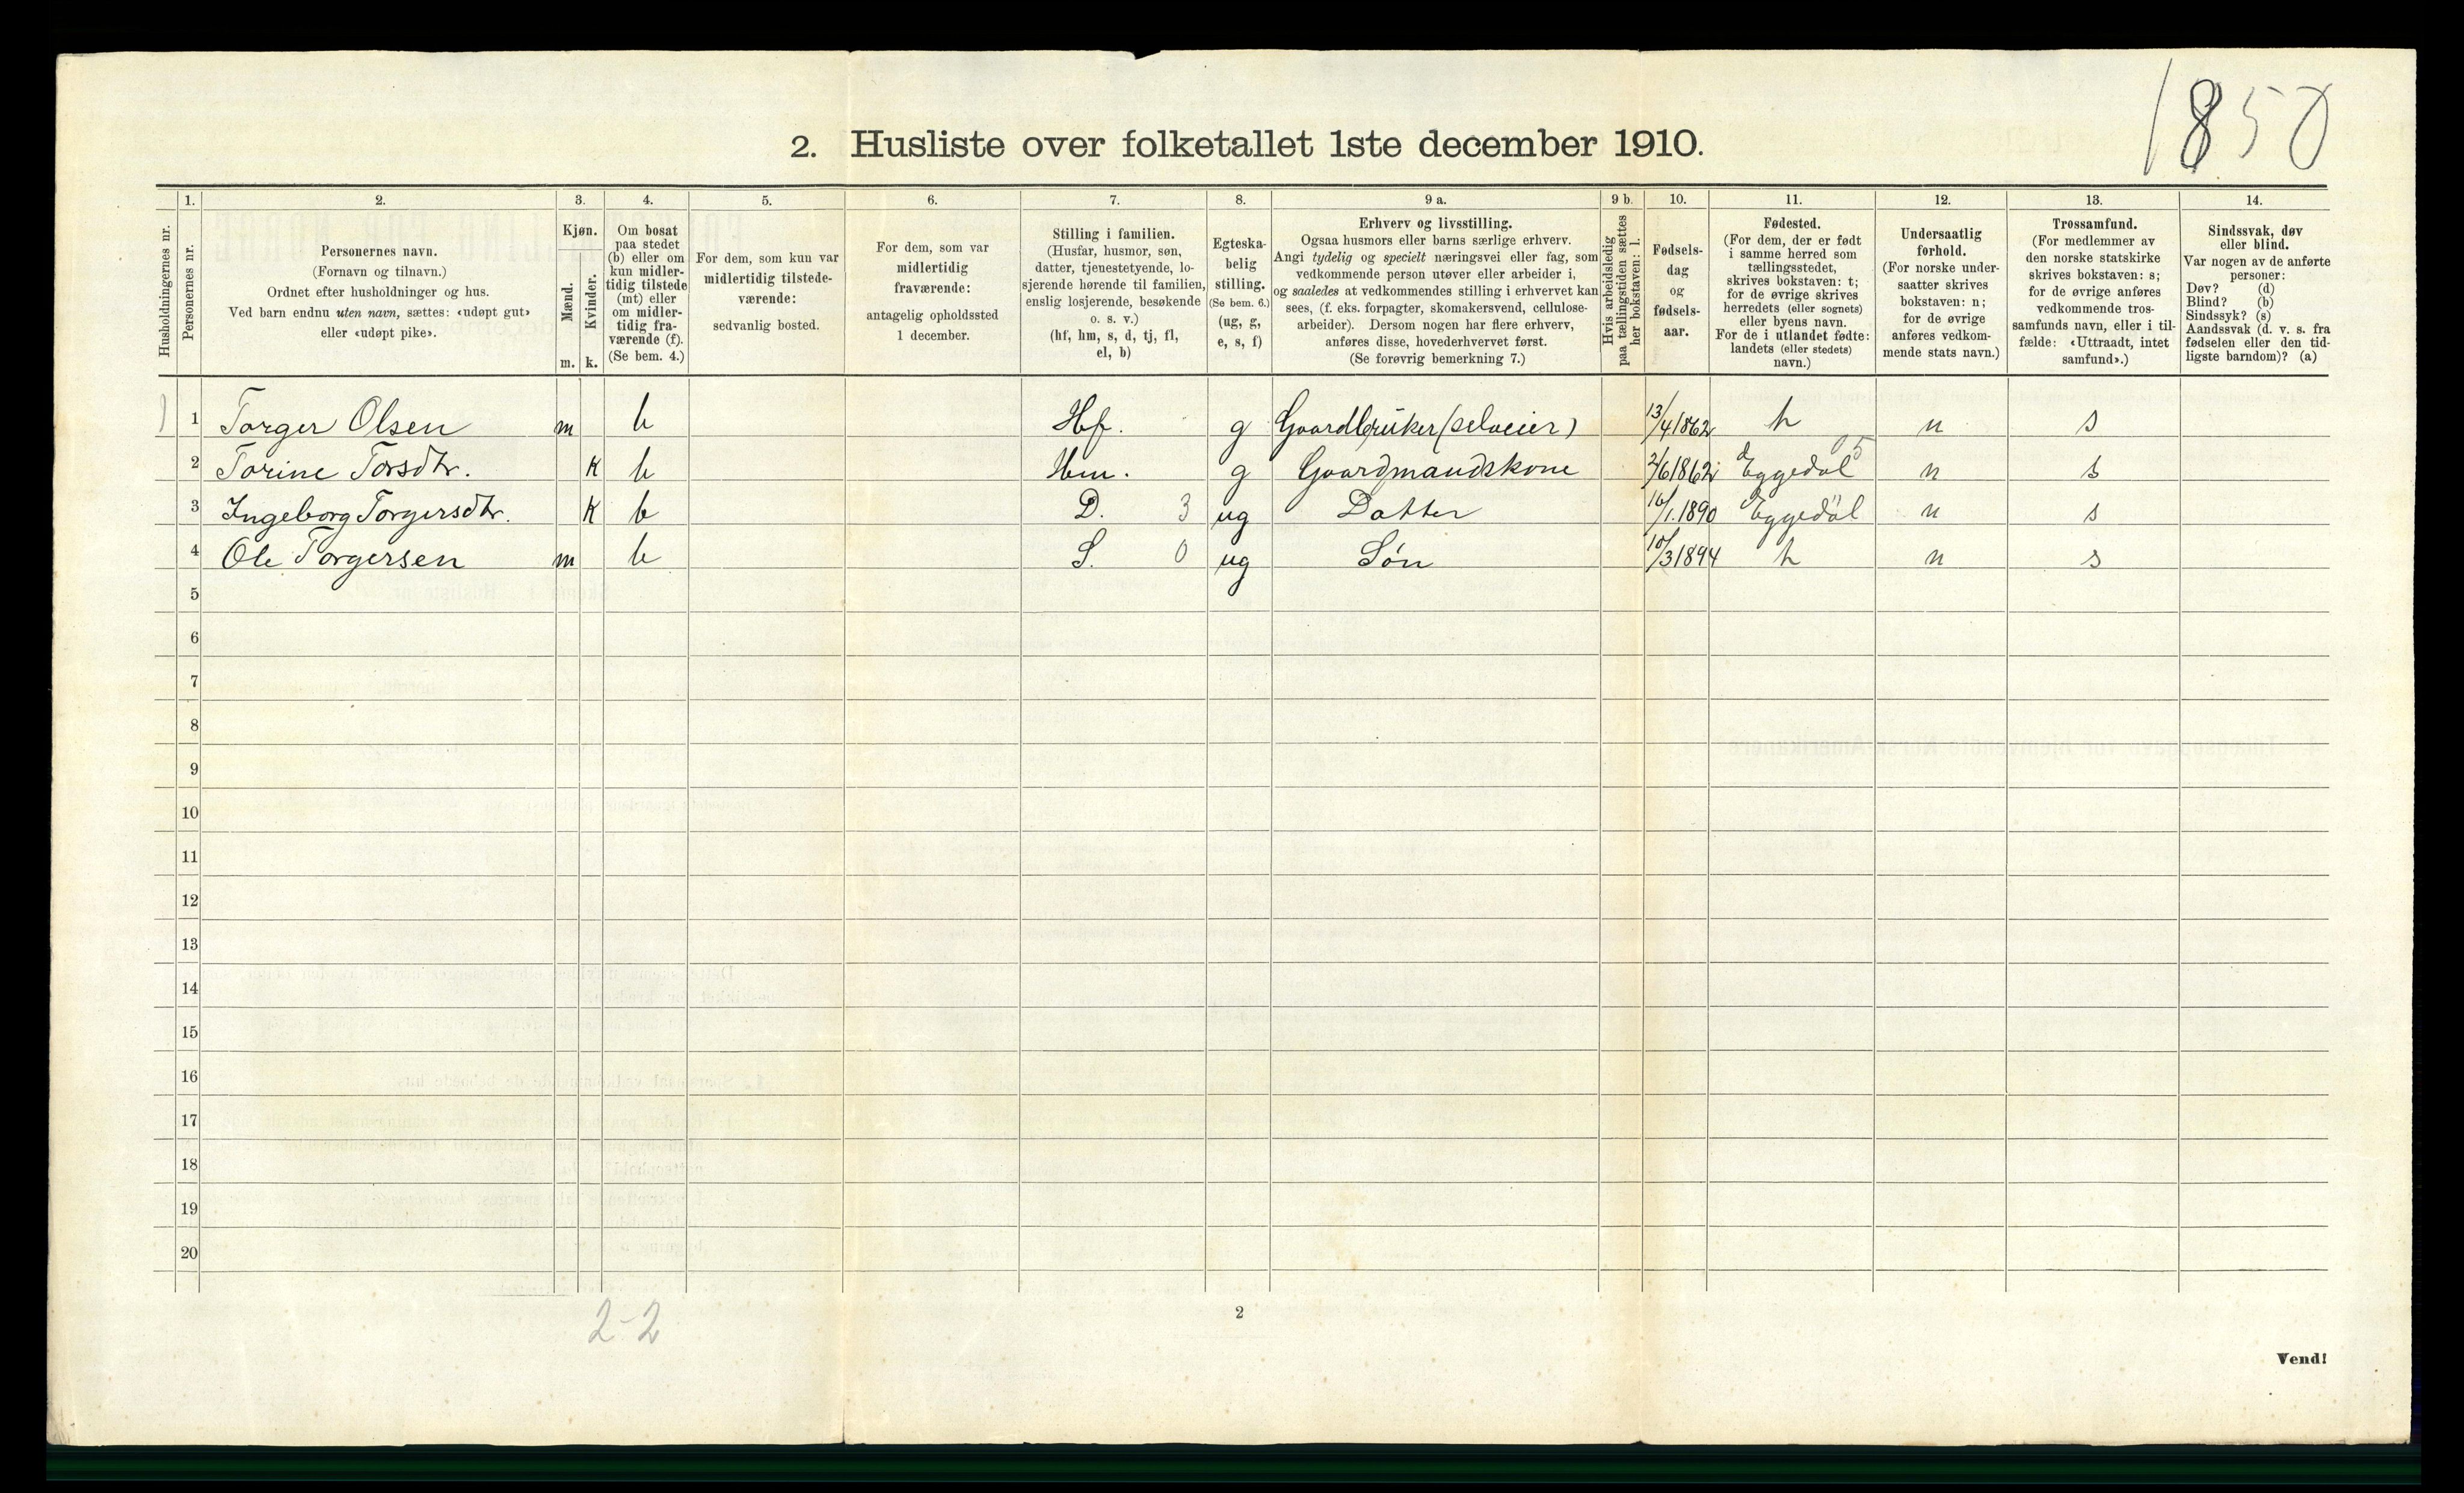 1850
2. Husliste over folketallet 1ste december 1910.
Husholdningernes nr.
1. Personernes nr.
2. Personernes navn.
(Fornavn og tilnavn.)
Ordnet efter husholdninger og hus.
Ved barn endnu uten navn, sættes: «udøpt gut»
eller «udøpt pike».
3. Kjøn.
Mænd. m.
Kvinder. k.
4. Om bosat
paa stedet
(b) eller om
kun midler-
tidig tilstede
(mt) eller
om midler-
tidig fra-
værende (f).
(Se bem. 4.)
5. For dem, som kun var
midlertidig tilstede-
værende:
sedvanlig bosted.
6. For dem, som var
midlertidig
fraværende:
antagelig opholdssted
1 december.
7. Stilling i familien.
(Husfar, husmor, søn,
datter, tjenestetyende, lo-
sjerende hørende til familien,
enslig losjerende, besøkende
o. s. v.)
(hf, hm, s, d, tj, fl,
el, b)
8. Egteska-
belig
stilling.
(Se bem. 6.)
(ug, g,
e, s, f)
9 a. Erhverv og livsstilling.
Ogsaa husmors eller barns særlige erhverv.
Angi tydelig og specielt næringsvei eller fag, som
vedkommende person utøver eller arbeider i,
og saaledes at vedkommendes stilling i erhvervet kan
sees, (f. eks. forpagter, skomakersvend, cellulose-
arbeider). Dersom nogen har flere erhverv,
anføres disse, hovederhvervet først.
(Se forøvrig bemerkning 7.)
9 b. Hvis arbeidsledig
paa tællingstiden sættes
her bokstaven: l.
10. Fødsels-
dag
og
fødsels-
aar.
11. Fødested.
(For dem, der er født
i samme herred som
tællingsstedet,
skrives bokstaven: t;
for de øvrige skrives
herredets (eller sognets)
eller byens navn.
For de i utlandet fødte:
landets (eller stedets)
navn.)
12. Undersaatlig
forhold.
(For norske under-
saatter skrives
bokstaven: n;
for de øvrige
anføres vedkom-
mende stats navn.)
13. Trossamfund.
(For medlemmer av
den norske statskirke
skrives bokstaven: s;
for de øvrige anføres
vedkommende tros-
samfunds navn, eller i til-
fælde: «Uttraadt, intet
samfund».)
14. Sindssvak, døv
eller blind.
Var nogen av de anførte
personer:
Døv? (d)
Blind? (b)
Sindssyk? (s)
Aandssvak (d. v. s. fra
fødselen eller den tid-
ligste barndom)? (a)
1 Torger Olsen m b Hf. g Gaardbruker (selveier) 13/4 1862 t n s
2 Torine Torsdtr. K b Hm. g Gaardmandskone 2/6 1862 Eggedal n s
3 Ingeborg Torgersdtr. K b D. 3 ug Datter 16/1. 1890 Eggedal n s
4 Ole Torgersen m b S. 0 ug Søn 10/3 1894 t n s
5
6
7
8
9
10
11
12
13
14
15
16
17
18
19
20
2-2
2
Vend!